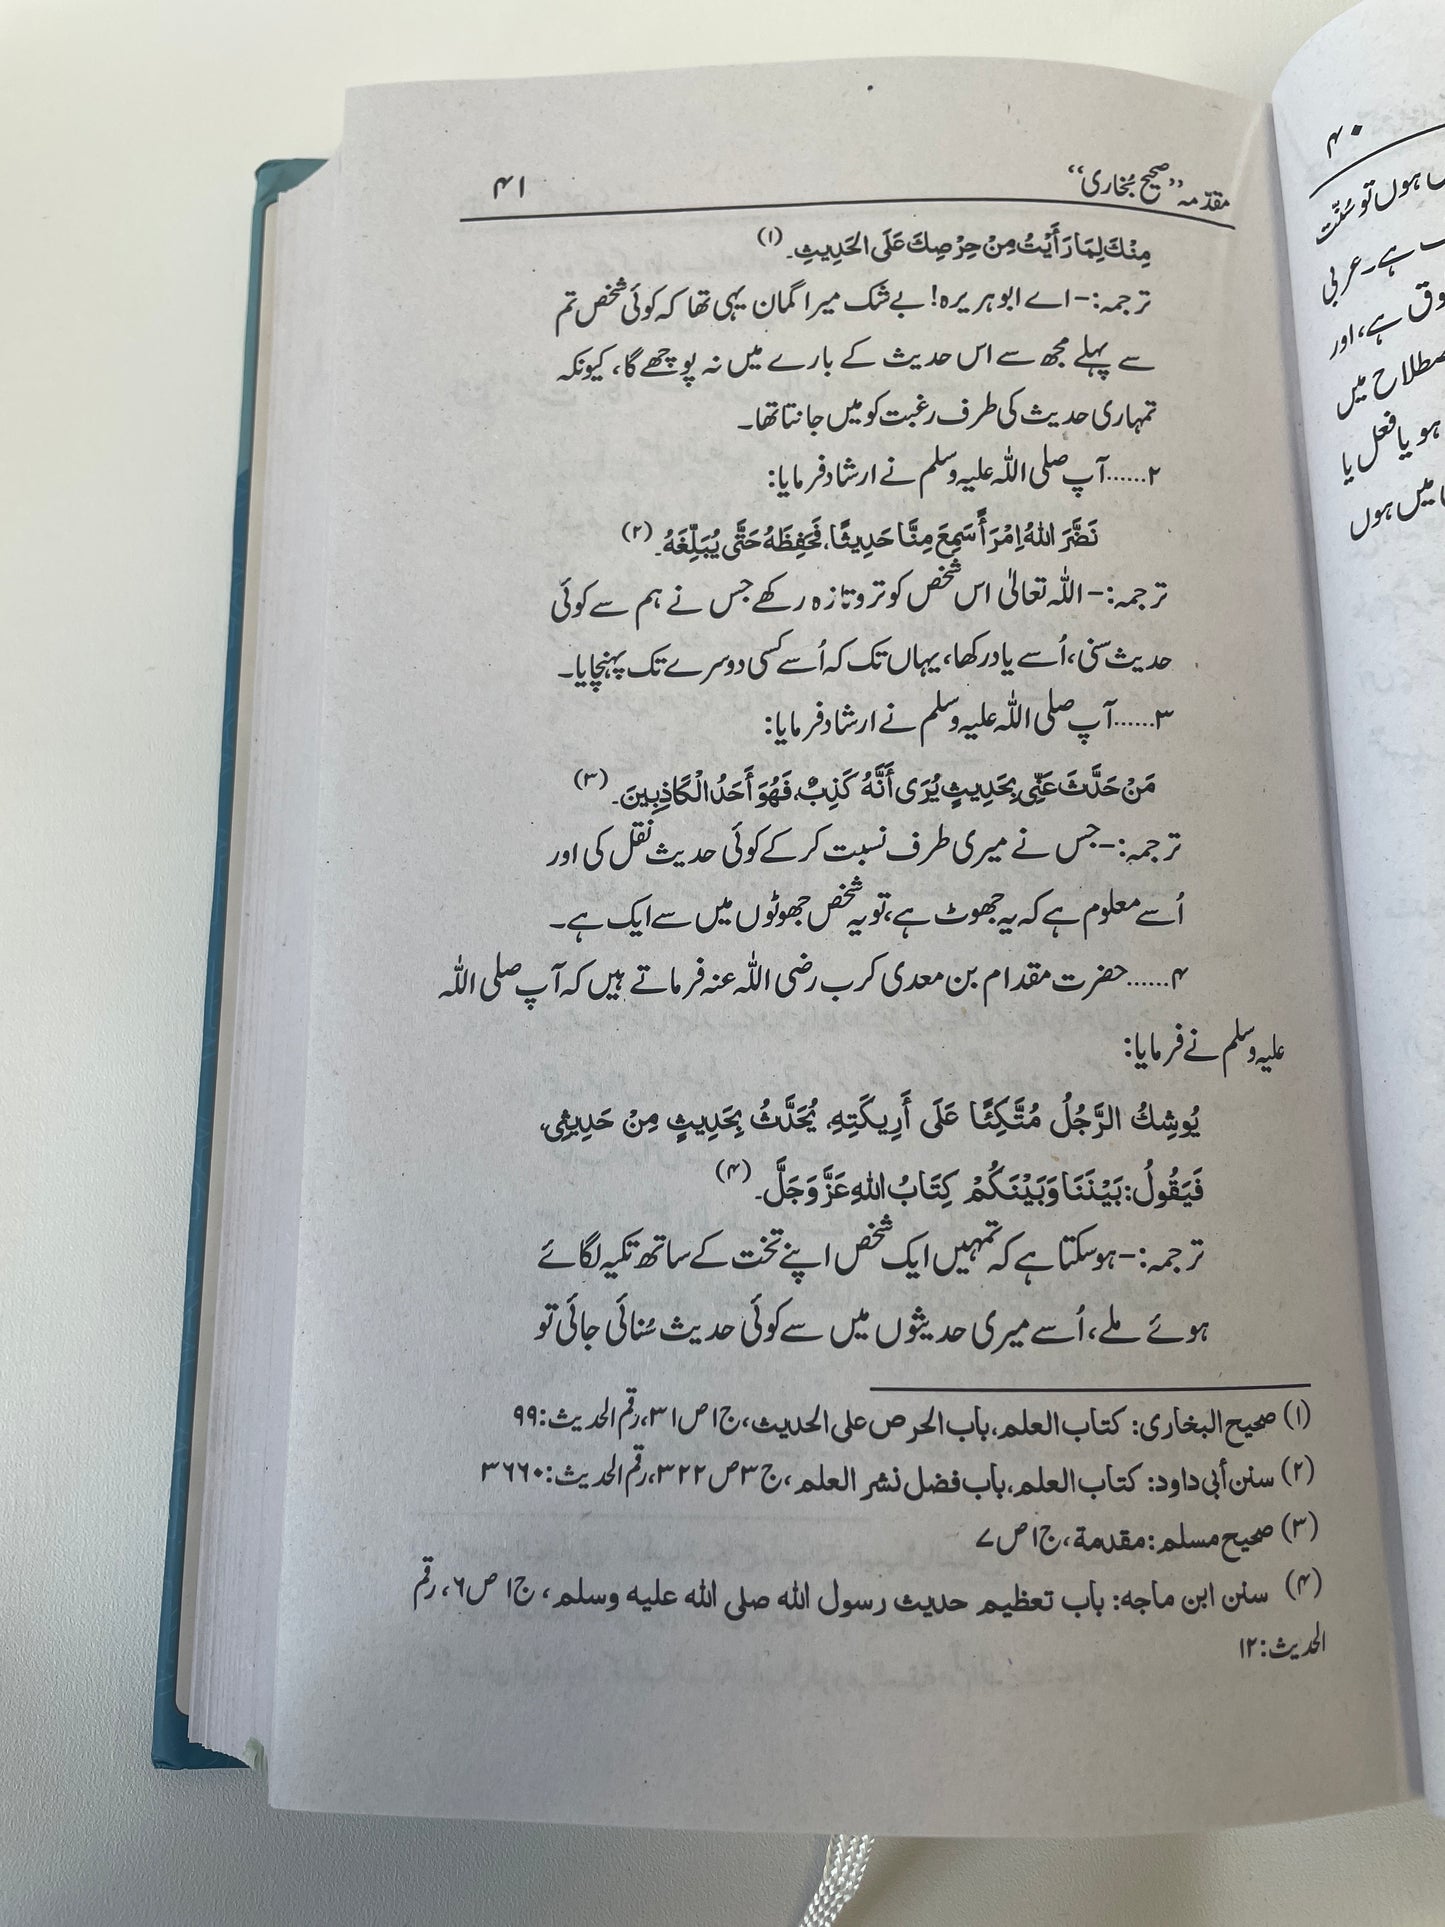 مقدّمہ ”صحیح بُخاری“ ۴۱
مِنْكَ لِمَا رَأَيْتُ مِنْ حِرْصِكَ عَلَى الحَدِيثِ۔ (۱)
ترجمہ:- اے ابوہریرہ! بے شک میرا گمان یہی تھا کہ کوئی شخص تم
سے پہلے مجھ سے اس حدیث کے بارے میں نہ پوچھے گا، کیونکہ
تمہاری حدیث کی طرف رغبت کو میں جانتا تھا۔
۲......آپ صلی اللہ علیہ وسلم نے ارشاد فرمایا:
نَضَّرَ اللهُ اِمْرَأً سَمِعَ مِنَّا حَدِيثًا، فَحَفِظَهُ حَتَّى يُبَلِّغَهُ۔ (۲)
ترجمہ:- اللہ تعالیٰ اس شخص کو تروتازہ رکھے جس نے ہم سے کوئی
حدیث سنی، اُسے یاد رکھا، یہاں تک کہ اُسے کسی دوسرے تک پہنچایا۔
۳......آپ صلی اللہ علیہ وسلم نے ارشاد فرمایا:
مَنْ حَدَّثَ عَنِّي بِحَدِيثٍ يُرَى أَنَّهُ كَذِبٌ، فَهُوَ أَحَدُ الْكَاذِبِينَ۔ (۳)
ترجمہ:- جس نے میری طرف نسبت کر کے کوئی حدیث نقل کی اور
اُسے معلوم ہے کہ یہ جھوٹ ہے، تو یہ شخص جھوٹوں میں سے ایک ہے۔
۴......حضرت مقدام بن معدی کرب رضی اللہ عنہ فرماتے ہیں کہ آپ صلی اللہ
علیہ وسلم نے فرمایا:
يُوشِكُ الرَّجُلُ مُتَّكِئًا عَلَى أَرِيكَتِهِ، يُحَدَّثُ بِحَدِيثٍ مِنْ حَدِيثِي،
فَيَقُولُ: بَيْنَنَا وَبَيْنَكُمْ كِتَابُ اللهِ عَزَّ وَجَلَّ۔ (۴)
ترجمہ:- ہوسکتا ہے کہ تمہیں ایک شخص اپنے تخت کے ساتھ تکیہ لگائے
ہوئے ملے، اُسے میری حدیثوں میں سے کوئی حدیث سُنائی جائی تو
(۱) صحيح البخاری: كتاب العلم، باب الحرص على الحديث، ج۱ ص۳۱، رقم الحديث: ۹۹
(۲) سنن أبي داود: كتاب العلم، باب فضل نشر العلم، ج۳ ص۳۲۲، رقم الحديث: ۳۶۶۰
(۳) صحيح مسلم: مقدمة، ج۱ ص۷
(۴) سنن ابن ماجه: باب تعظيم حديث رسول الله صلى الله عليه وسلم، ج۱ ص۶، رقم
الحديث: ۱۲
۴۰
ہوں تو سُنّت
ہے۔ عربی
ہے، اور
میں
ہو یا فعل یا
میں ہوں